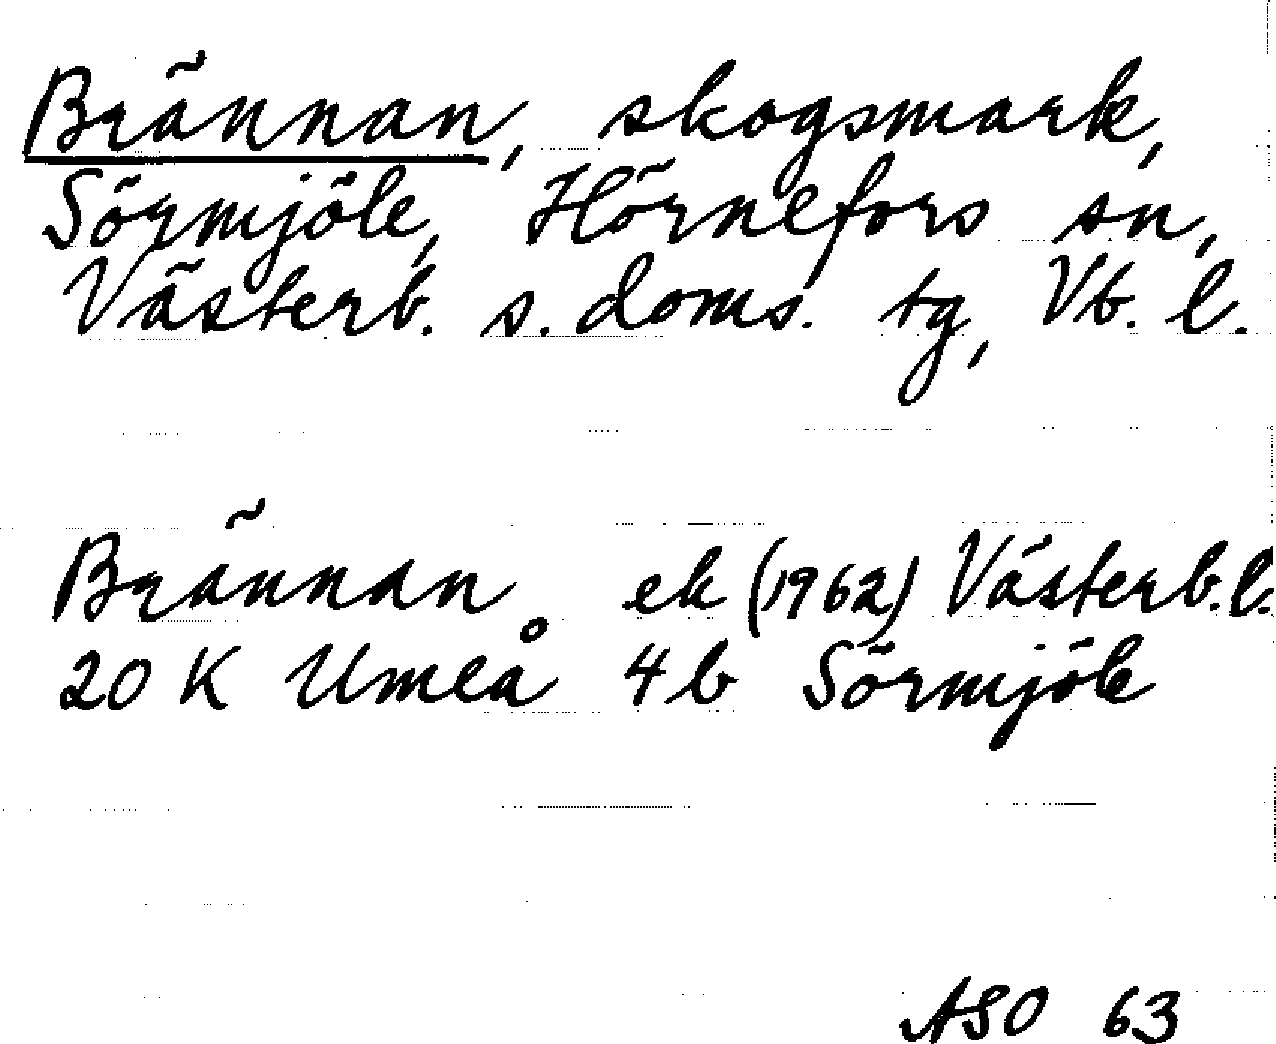 Brännan, skogsmark,
Sörmjöle, Hörnefors sn,
Västerb. s. doms. tg, Vb. l.
Brännan ek (1962) Västerb. l.
20 K Umeå 4 b Sörmjöle
ASO 63